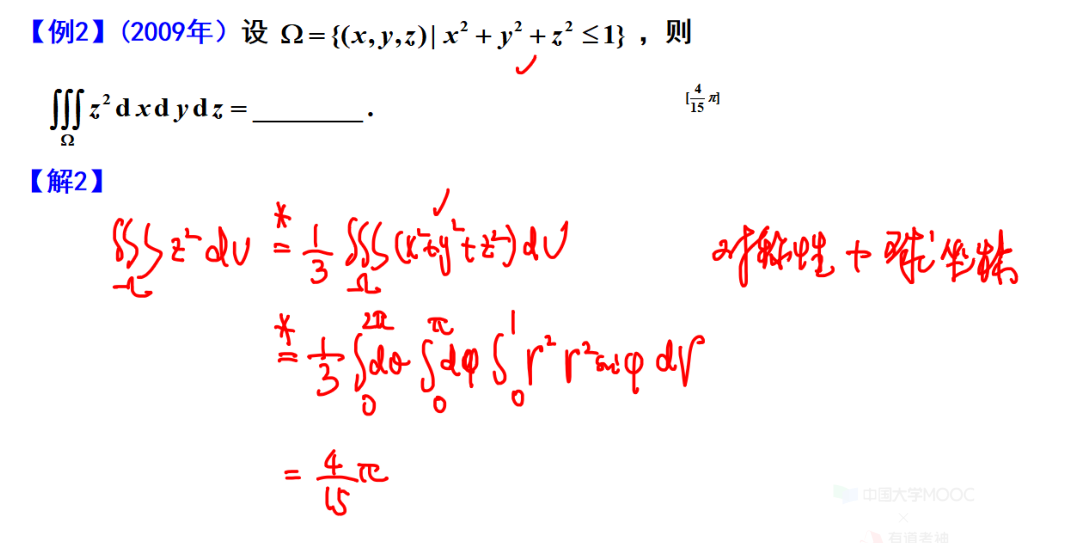 【例2】(2009年) 设 Ω={(x,y,z)| x²+y²+z²≤1} ，则
∭_Ω z² dxdydz = ________.
[4/15 π]
【解2】
∭_Ω z² dV =* 1/3 ∭_Ω (x²+y²+z²) dV
对称性 + 球坐标
=* 1/3 ∫_0^{2π} dθ ∫_0^π dφ ∫_0^1 r² r² sinφ dr
= 4/15 π
中国大学MOOC
×
有道考神